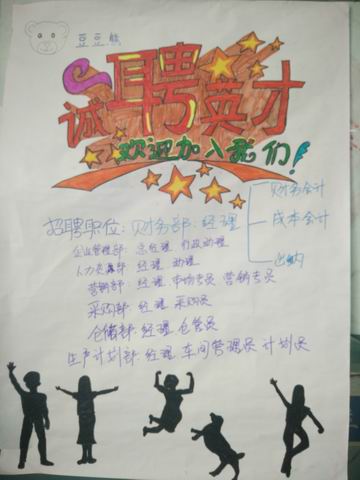 豆豆熊
诚聘英才
欢迎加入我们!
招聘职位:财务部:经理
财务会计
成本会计
出纳
企业管理部:总经理 行政助理
人力资源部:经理 助理
营销部:经理 市场专员 营销专员
采购部:经理 采购员
仓储部:经理 仓管员
生产计划部:经理 车间管理员 计划员